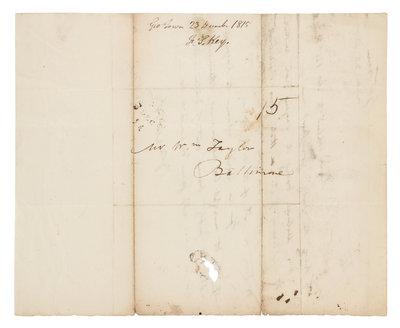 Geo Town 23 March 1815
F. S. Key.
15
Mr Wm Taylor
Baltimore